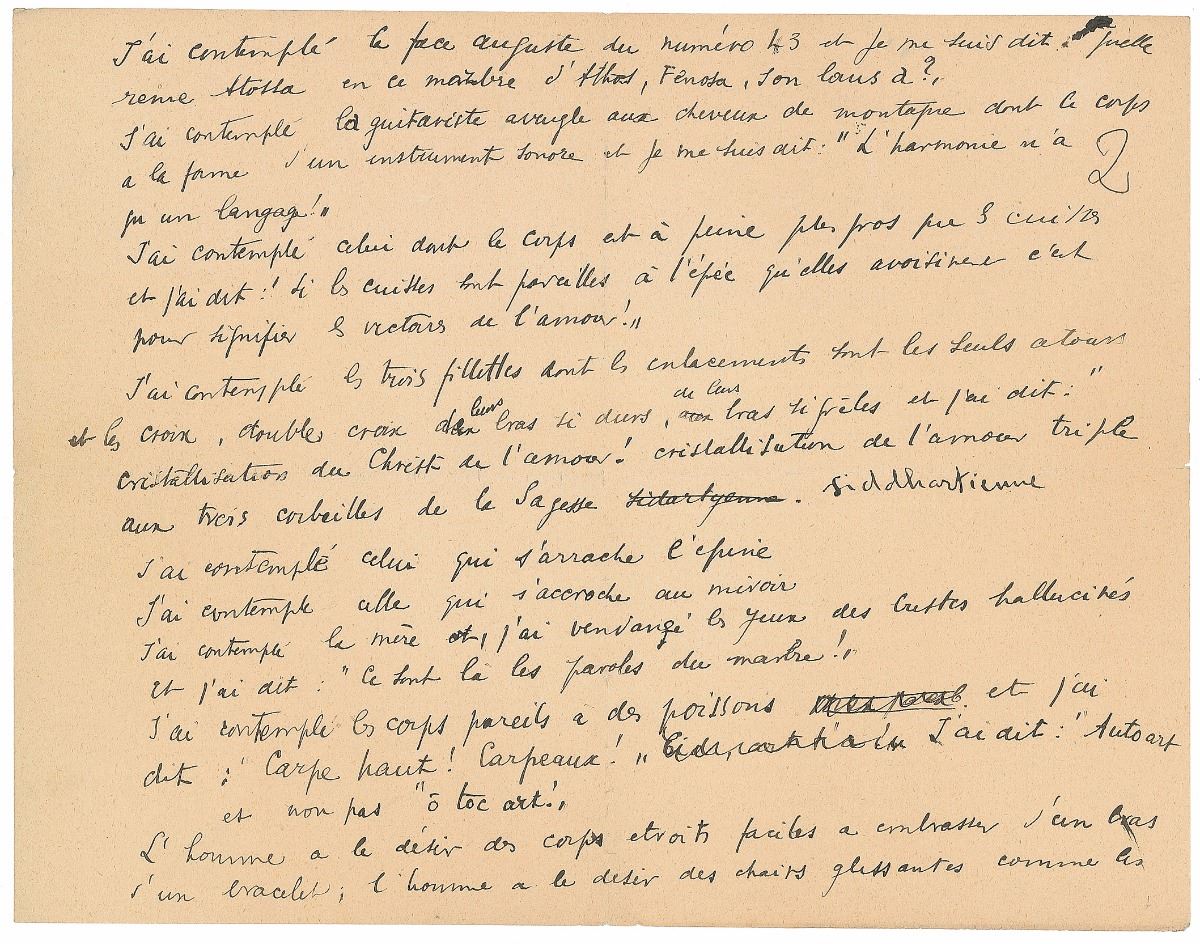 J'ai contemplé la face auguste du numéro 43 et je me suis dit : "quelle
reine Atossa en ce marbre d'Athos, Fenosa, ton laus à ?"
J'ai contemplé la guitariste aveugle aux cheveux de montagne dont le corps
a la forme d'un instrument sonore et je me suis dit : "L'harmonie n'a
2
qu'un langage !"
J'ai contemplé celui dont le corps est à peine plus gros que ses cuisses
et j'ai dit : "Si les cuisses sont pareilles à l'épée qu'elles avoisinent c'est
pour signifier les victoires de l'amour !"
J'ai contemplé les trois fillettes dont les enlacements sont les seuls atours
et les croix, doubles croix de leurs bras si durs, de leurs bras si grêles et j'ai dit : "
cristallisation du Christ de l'amour ! cristallisation de l'amour triple
aux trois corbeilles de la Sagesse sidartyenne. siddhartienne
J'ai contemplé celui qui s'arrache l'épine
J'ai contemplé celle qui s'accroche au miroir
J'ai contemplé la mère et, j'ai vendangé les yeux des bustes hallucinés
et j'ai dit : "Ce sont là les paroles du marbre !"
J'ai contemplé les corps pareils à des poissons et j'ai
dit : "Carpe haut ! Carpeaux !" J'ai dit : "Autoart
et non pas "ô toc art !"
L'homme a le désir des corps étroits faciles à embrasser d'un bras
d'un bracelet ; l'homme a le désir des chairs glissantes comme les